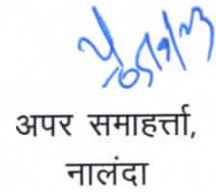 अपर समाहर्त्ता,
नालंदा